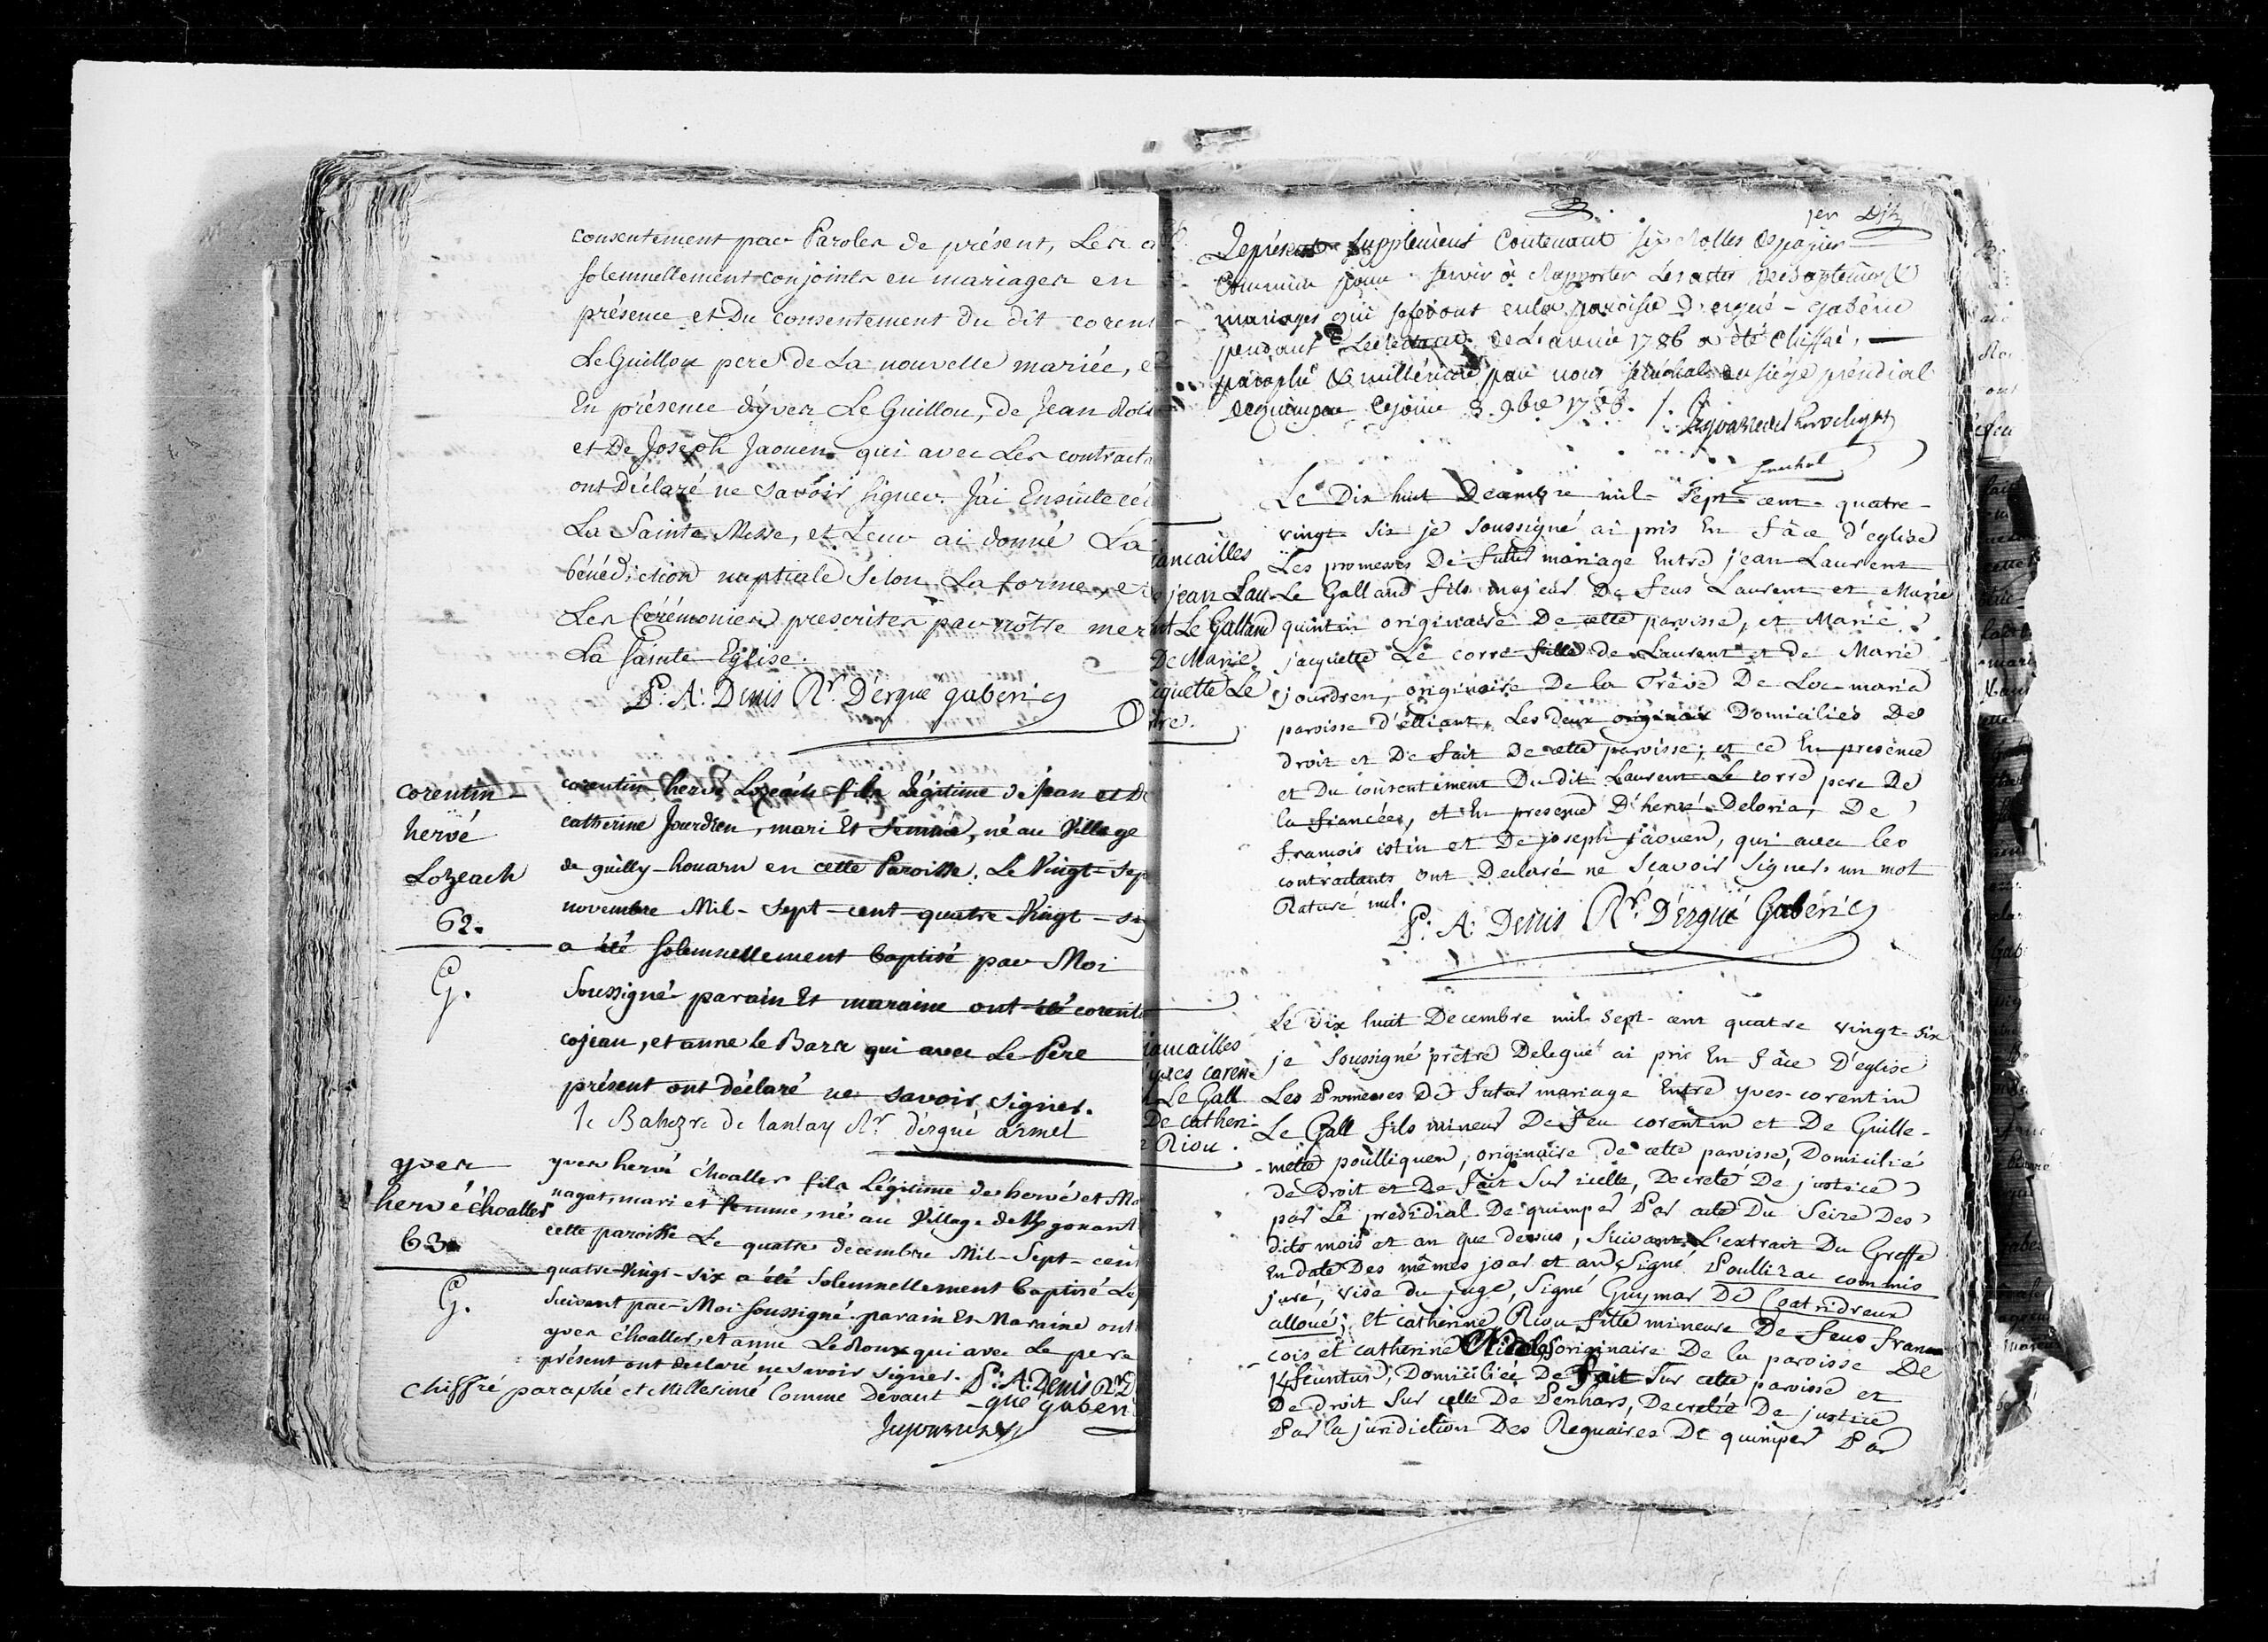 consentement par Paroles de présent, Les a
solemnellement conjoints en mariages en
présence et Du consentement Du dit corent
Le Guillou pere de La nouvelle mariée, e
En présence d'yves Le Guillou, de Jean
et De Joseph Jaouen qui avec Les contracta
ont Déclaré ne savoir signer. J'ai Ensuite cél
La Sainte Messe, et Leur ai donné La
bénédiction nuptiale Selon La forme, e
Les Cérémonies prescrites par nôtre mer
La Sainte Eglise.
P. A. Denis Rr. D'ergue gaberic
corentin
hervé
Lozeach
62.
G.
corentin hervé Lozeach fils Légitime de jean et De
catherine Jourdren, mari Et femme, né au Village
de guilly-houarn en cette Paroisse. Le Vingt-Sep
novembre Mil-Sept-cent-quatre Vingt-six
a été solemnellement baptisé par Moi
Soussigné parain Et maraine ont été corentin
cojean, et anne le Bars qui avec Le Père
présent ont déclaré ne savoir signer.
le Bahezre de lanlay Rr d'ergue armel
yves
hervé choalles
63
G.
yves hervé choalles fils Légitime de hervé et Ma
nagat, mari et femme, né au Village de
cette paroisse Le quatre decembre Mil-Sept-cent
quatre-Vingt-six a été Solemnellement baptisé Le
Suivant par Moi soussigné parain Et Maraine ont
yves choalles, et anne Le Roux qui avec Le pere
présent ont declaré ne Savoir signer. P. A. Denis Rr D
-gue gaben
Chiffré paraphé et Millesimé Comme Devant
per
Le présent Supplément Contenant six Rolles de papier
commun pour servir à Rapporter Les actes de baptemes &
mariages qui se feront en la paroisse D'ergué-gabéric
pendant Le de L'année 1786 a été chiffré,
paraphé & millésimé par nous sénéchal du siége présidial
de quimper ce jour 3. 9bre 1786.
Senechal
iancailles
e jean Lau
nt Le Galland
De Marie
cquette Le
rre.
Le Dix huit Decembre mil-Sept-cent-quatre-
vingt-six je soussigné ai pris En fâce d'eglise
Les promesses De futur mariage Entre jean Laurent
Le Galland fils majeur De feus Laurent et Marie
quintin originaire De cette paroisse, et Marie
jacquette Le corre fille de Laurent et de Marie
jourdren, originaire De la Trêve De Loc-maria
paroisse d'Elliant, Les deux originair Domiciliés De
droit et De fait De cette paroisse; et ce En presence
et Du consentiment Du dit Laurent Le corre pere De
la fiancée, et En presence D'hervé Deloria, De
francois istin et De joseph jaouen, qui avec les
contractants ont Declaré ne Sçavoir Signer. un mot
Raturé nul.
P. A. Denis Rr. D'ergué Gabéric
iancailles
yves coren-
Le Gall
De catheri-
e Riou.
Le dix huit Decembre mil Sept-cent quatre vingt-six
je Soussigné prêtre Delegué ai pris En fâce D'eglise
Les Promesses De futur mariage Entre yves-corentin
Le Gall fils mineur De feu corentin et De Guille-
-mette poulliquen, originaire de cette paroisse, Domicilié
de Droit et De fait Sur icelle, Decreté De justice
par Le presidial De quimper Par acte Du Seize Des
dits mois et an que dessus, Suivant L'extrait Du Greffe
En date Des mêmes jour et an Signé Poullizac commis
juré, vise du juge, Signé Guymar De Coatridreux
alloué; et catherine Riou fille mineure De feus fran
çois et catherine originaire De la paroisse De
Kfeunteun, Domiciliée De Fait Sur cette paroisse et
De Droit Sur celle De Penhars, Decretée De justice
Par la juridiction Des Reguaires De quimper Par